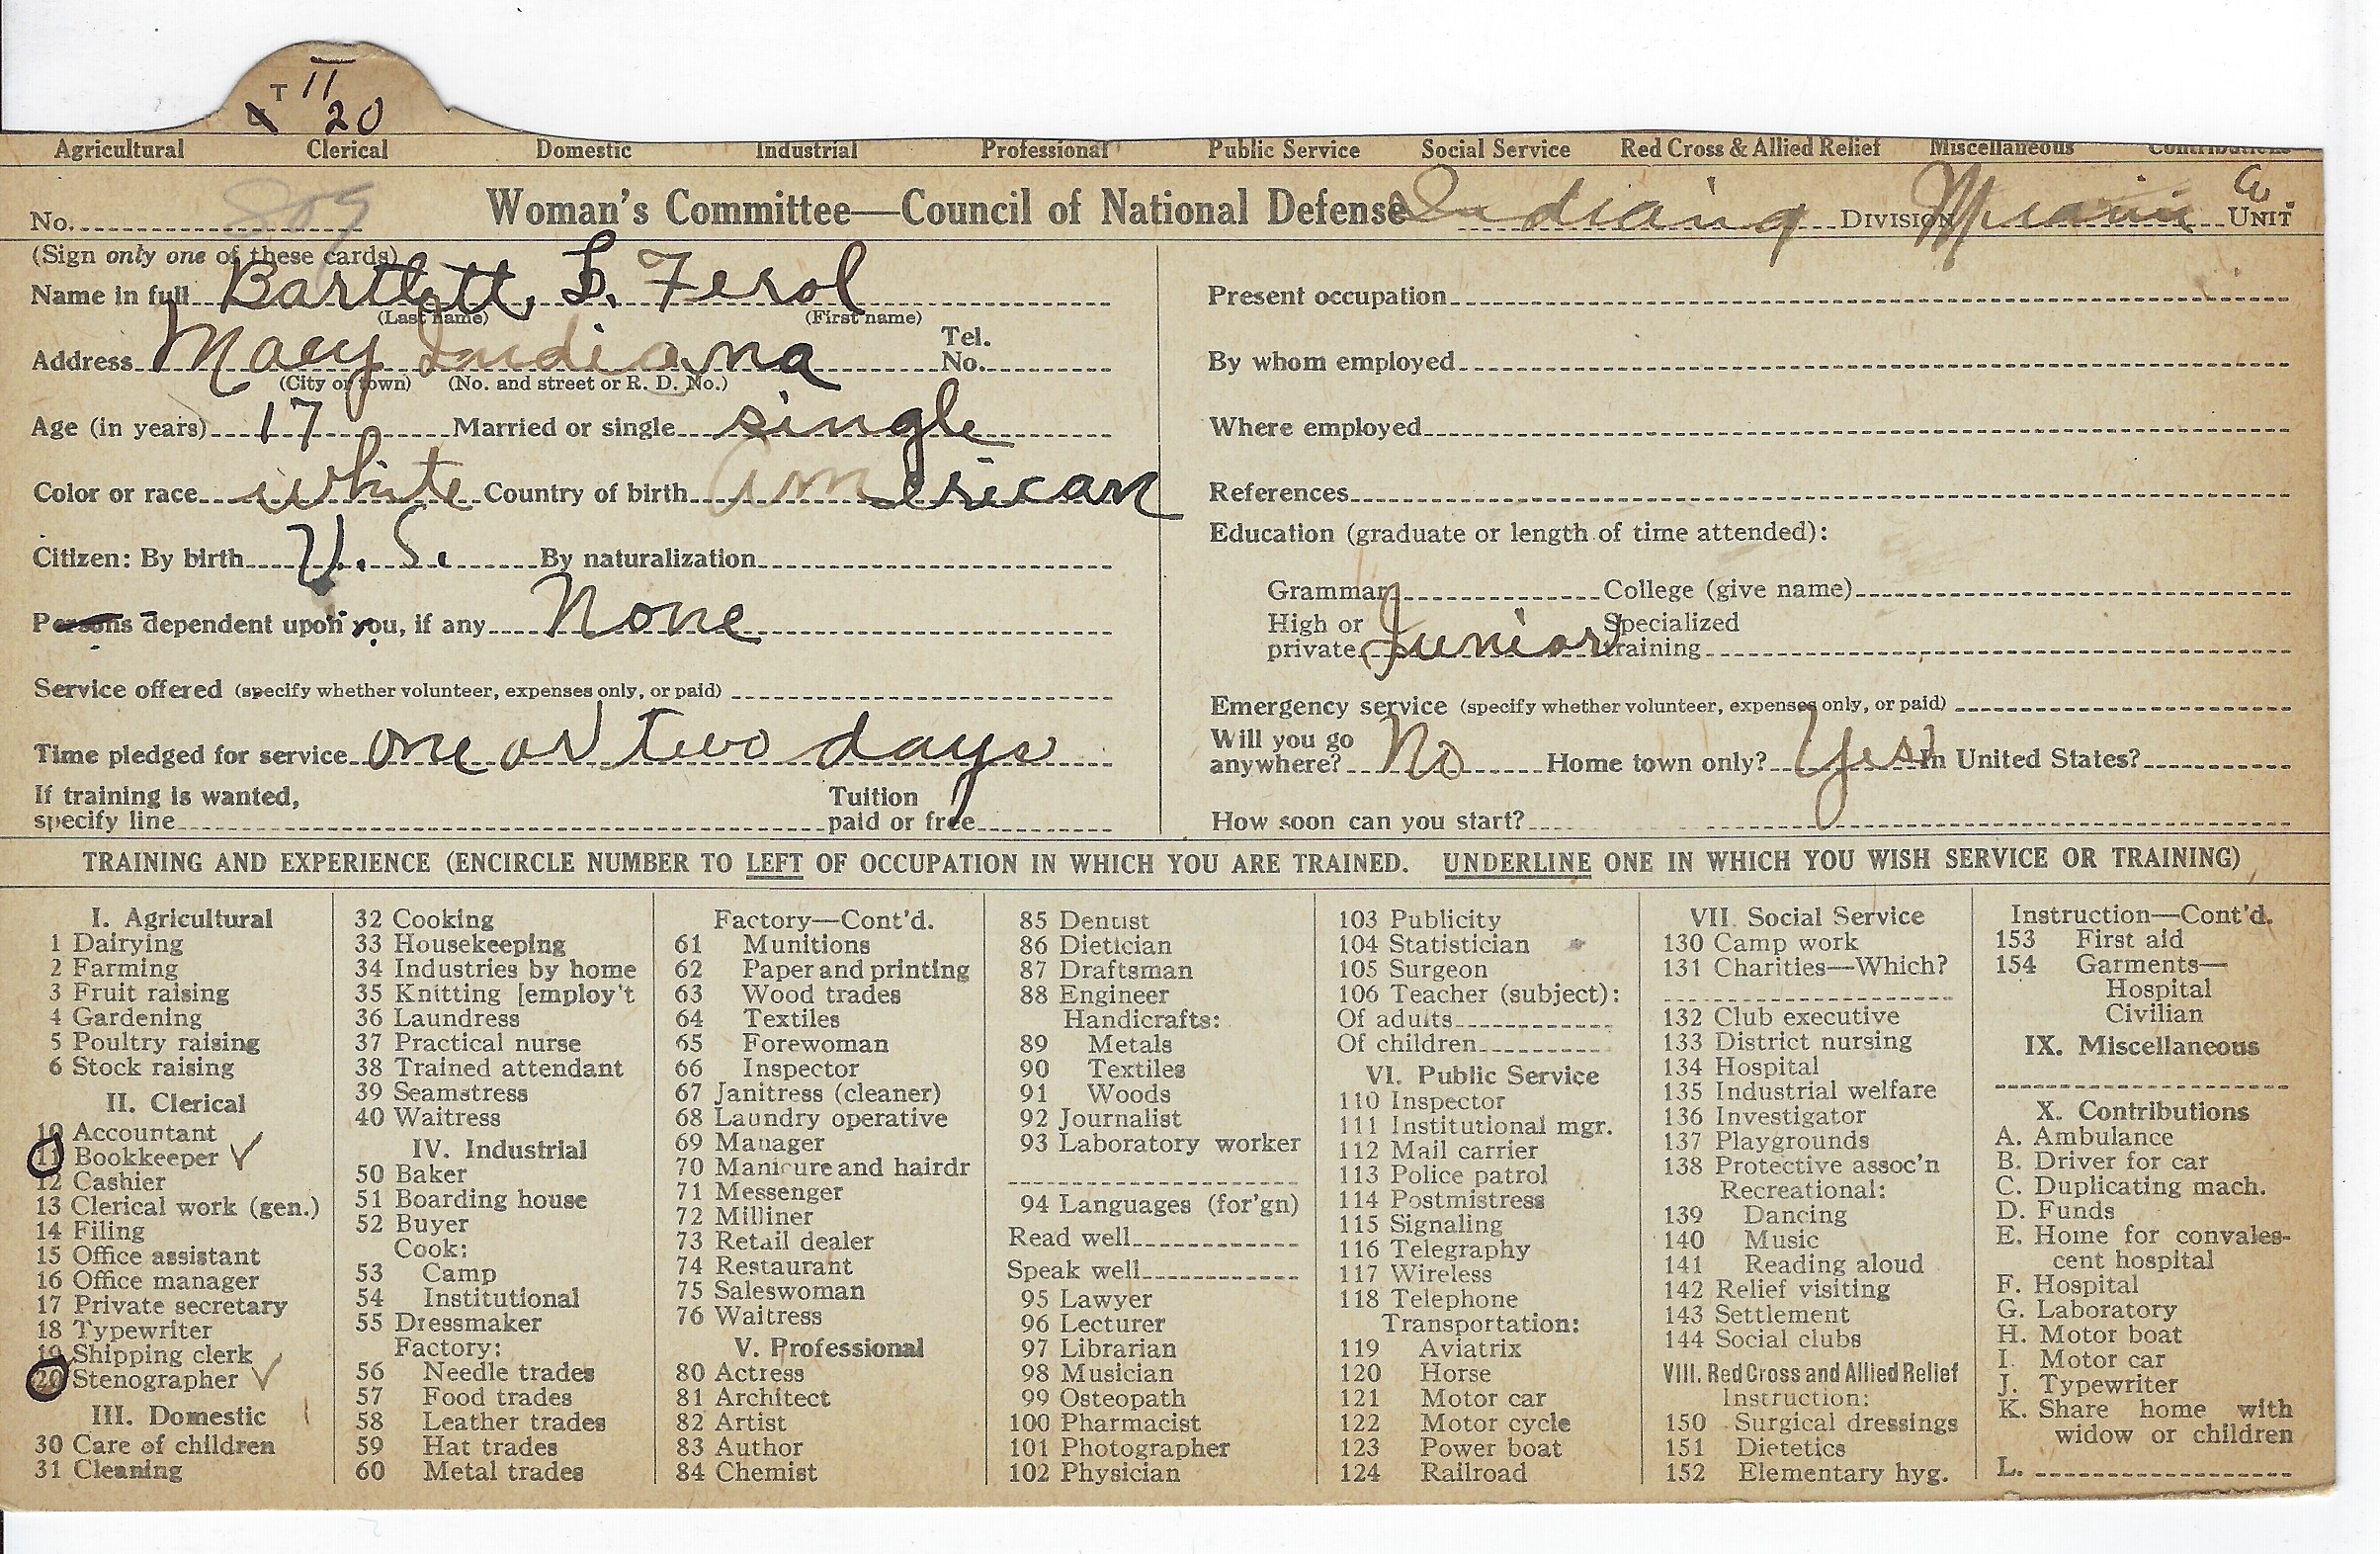 T 11
20
Agricultural Clerical Domestic Industrial Professional Public Service Social Service Red Cross & Allied Relief Miscellaneous Contributions
No. 809 Woman's Committee—Council of National Defense Indiana DIVISION Miami Co. UNIT
(Sign only one of these cards)
Name in full Bartlett, L. Ferol
(Last name) (First name)
Address Macy Indiana Tel. No.
(City or town) (No. and street or R. D. No.)
Age (in years) 17 Married or single single
Color or race white Country of birth American
Citizen: By birth U. S. By naturalization
Persons dependent upon you, if any None
Service offered (specify whether volunteer, expenses only, or paid)
Time pledged for service one or two days
If training is wanted, specify line Tuition paid or free
Present occupation
By whom employed
Where employed
References
Education (graduate or length of time attended):
Grammar College (give name)
High or private Junior Specialized training
Emergency service (specify whether volunteer, expenses only, or paid)
Will you go anywhere? No Home town only? Yes In United States?
How soon can you start?
TRAINING AND EXPERIENCE (ENCIRCLE NUMBER TO LEFT OF OCCUPATION IN WHICH YOU ARE TRAINED. UNDERLINE ONE IN WHICH YOU WISH SERVICE OR TRAINING)
I. Agricultural
1 Dairying
2 Farming
3 Fruit raising
4 Gardening
5 Poultry raising
6 Stock raising
II. Clerical
10 Accountant
11 Bookkeeper ✓
12 Cashier
13 Clerical work (gen.)
14 Filing
15 Office assistant
16 Office manager
17 Private secretary
18 Typewriter
19 Shipping clerk
20 Stenographer ✓
III. Domestic
30 Care of children
31 Cleaning
32 Cooking
33 Housekeeping
34 Industries by home
35 Knitting [employ't
36 Laundress
37 Practical nurse
38 Trained attendant
39 Seamstress
40 Waitress
IV. Industrial
50 Baker
51 Boarding house
52 Buyer
Cook:
53 Camp
54 Institutional
55 Dressmaker
Factory:
56 Needle trades
57 Food trades
58 Leather trades
59 Hat trades
60 Metal trades
Factory—Cont'd.
61 Munitions
62 Paper and printing
63 Wood trades
64 Textiles
65 Forewoman
66 Inspector
67 Janitress (cleaner)
68 Laundry operative
69 Manager
70 Manicure and hairdr
71 Messenger
72 Milliner
73 Retail dealer
74 Restaurant
75 Saleswoman
76 Waitress
V. Professional
80 Actress
81 Architect
82 Artist
83 Author
84 Chemist
85 Dentist
86 Dietician
87 Draftsman
88 Engineer
Handicrafts:
89 Metals
90 Textiles
91 Woods
92 Journalist
93 Laboratory worker
94 Languages (for'gn)
Read well
Speak well
95 Lawyer
96 Lecturer
97 Librarian
98 Musician
99 Osteopath
100 Pharmacist
101 Photographer
102 Physician
103 Publicity
104 Statistician
105 Surgeon
106 Teacher (subject):
Of adults
Of children
VI. Public Service
110 Inspector
111 Institutional mgr.
112 Mail carrier
113 Police patrol
114 Postmistress
115 Signaling
116 Telegraphy
117 Wireless
118 Telephone
Transportation:
119 Aviatrix
120 Horse
121 Motor car
122 Motor cycle
123 Power boat
124 Railroad
VII. Social Service
130 Camp work
131 Charities—Which?
132 Club executive
133 District nursing
134 Hospital
135 Industrial welfare
136 Investigator
137 Playgrounds
138 Protective assoc'n
Recreational:
139 Dancing
140 Music
141 Reading aloud
142 Relief visiting
143 Settlement
144 Social clubs
VIII. Red Cross and Allied Relief
Instruction:
150 Surgical dressings
151 Dietetics
152 Elementary hyg.
Instruction—Cont'd.
153 First aid
154 Garments—
Hospital
Civilian
IX. Miscellaneous
X. Contributions
A. Ambulance
B. Driver for car
C. Duplicating mach.
D. Funds
E. Home for convales-
cent hospital
F. Hospital
G. Laboratory
H. Motor boat
I. Motor car
J. Typewriter
K. Share home with
widow or children
L.